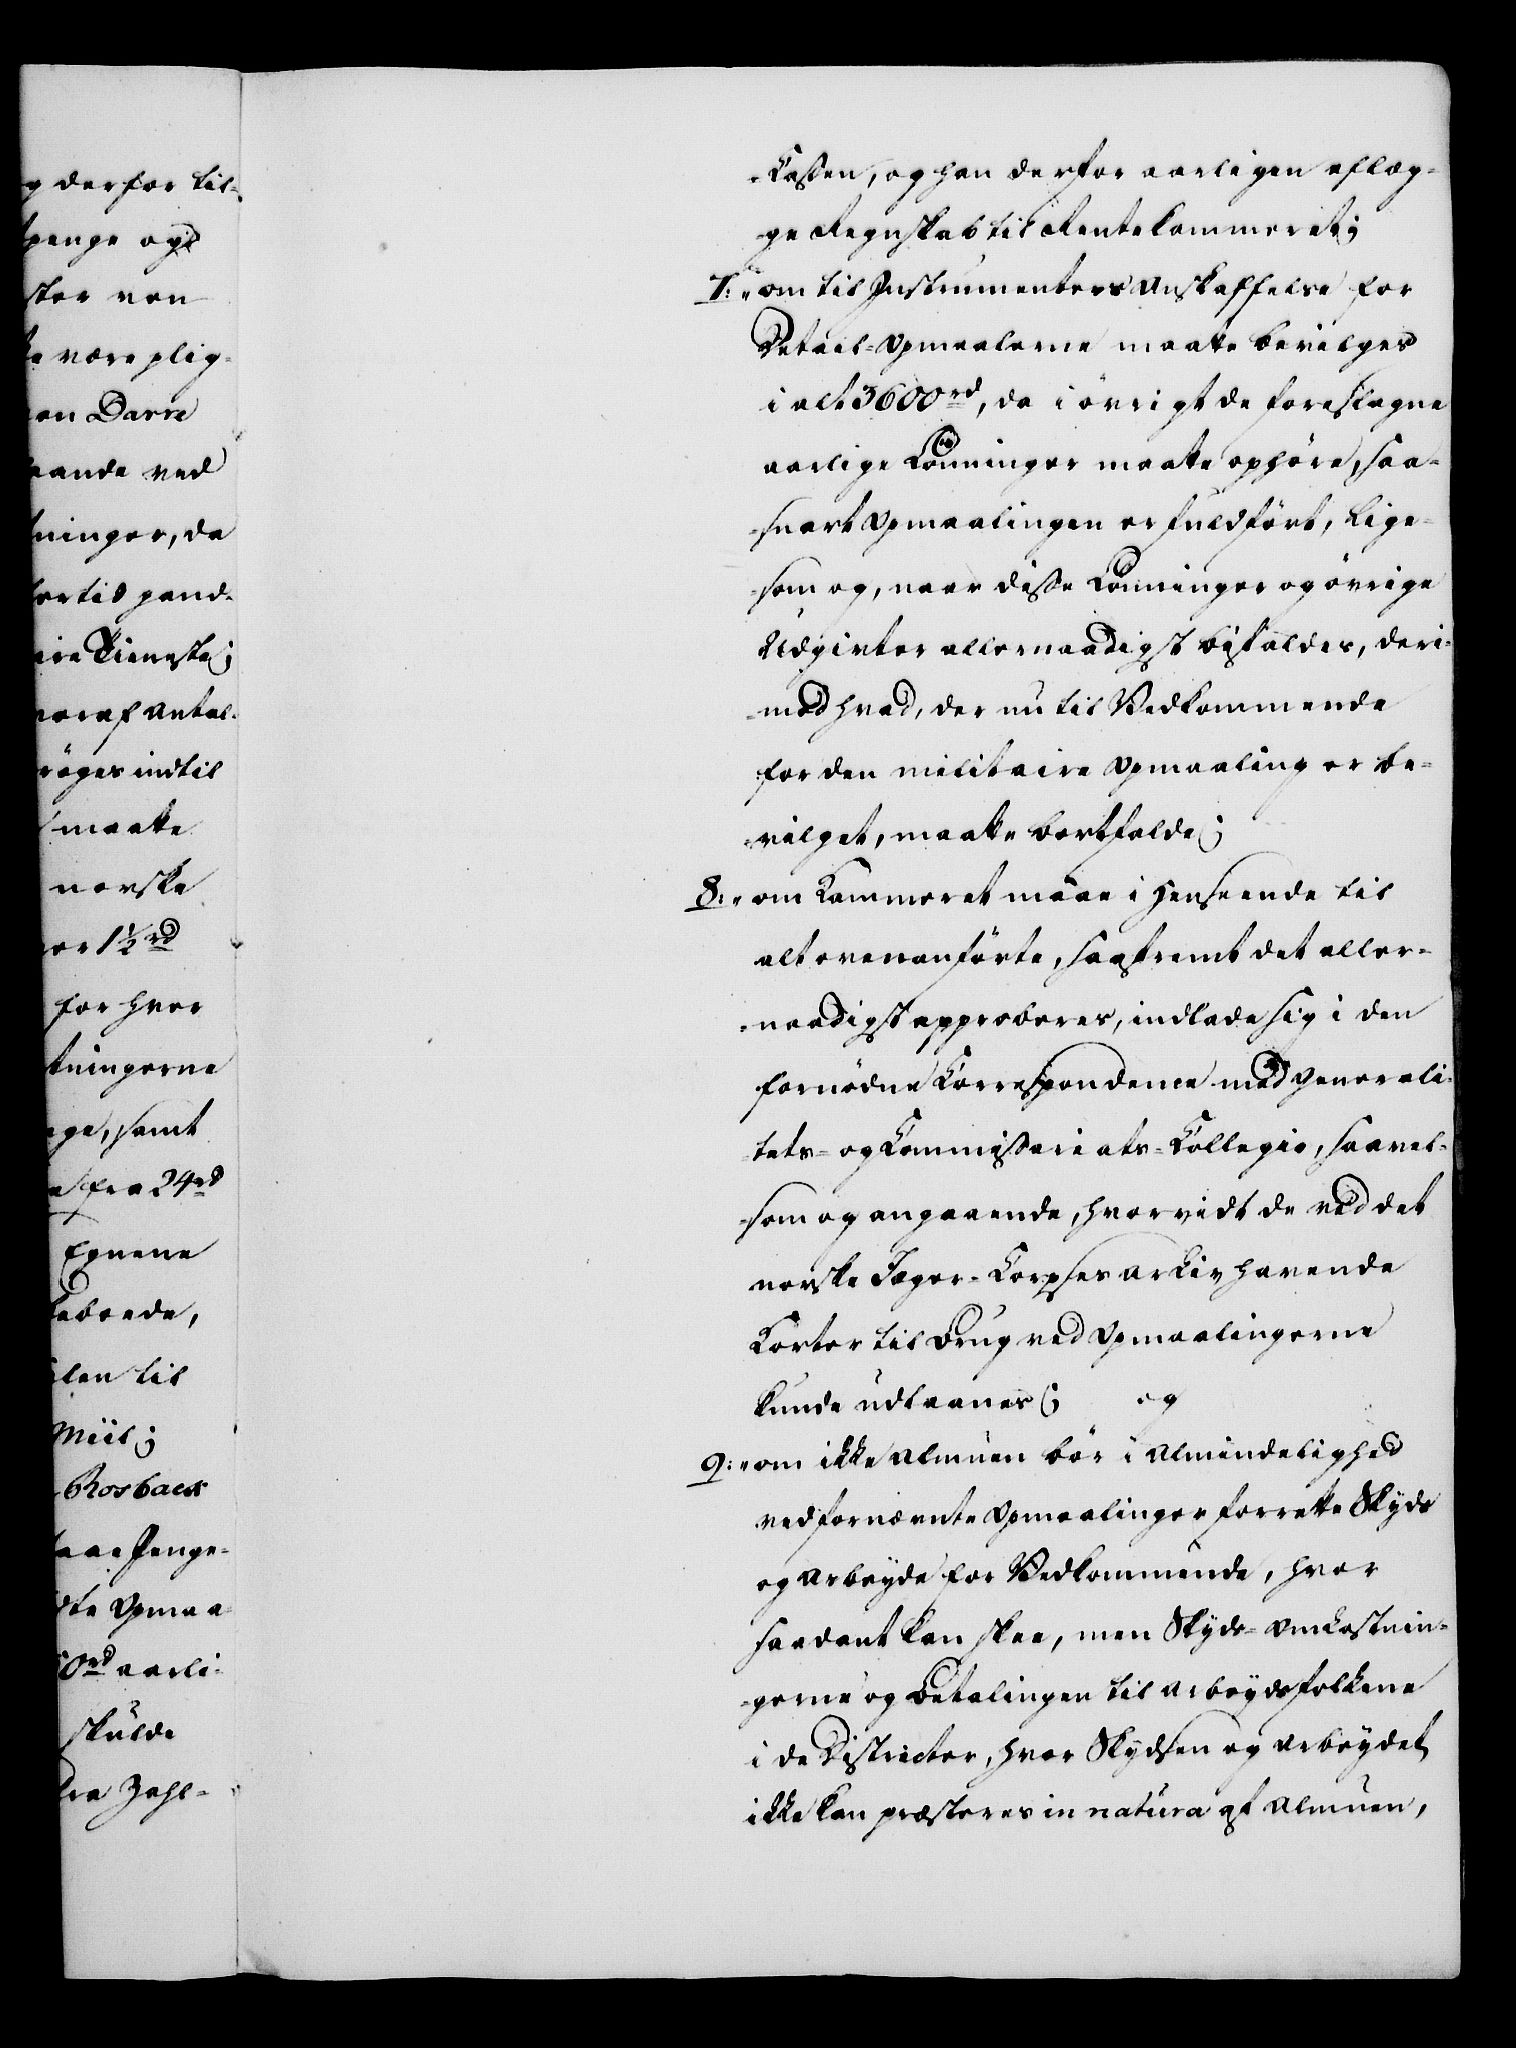 g derfor til-
penge og
ster ven
ke være plig-
on Darre
aande ved
ninger, da
fortid pend-
ire Tieneste;
voraf Antal-
röges indtil
maatte
norske
er 1½ rd
for hver
tningerne
ge, samt
fra 24 rd
Egnene
beboede,
len til
Miil;
Rosback
aae Penge-
dte Opmaa-
0 rd aarli-
skulde
tra Zahl-
-Kassen, og han derfor aarligen aflæg-
ge Regnskab til Rentekammeret;
7:, om til Instrumenters Anskaffelse for
Detail-Opmaalerne maatte bevilges
i alt 3600 rd, da i övrigt de foreslagne
aarlige Lönninger maatte ophöre, saa-
-snart Opmaalingen er fuldfört, lige-
-som og, naar disse Lönninger og övrige
Udgivter allernaadigst bifaldes, deri-
-mod hvad, der nu til Vedkommende
for den militaire Opmaaling er be-
-vilget, maatte bortfalde;
8:, om Kammeret maae i Henseende til
alt ovenanförte, saafremt det aller-
-naadigst approberes, indlade sig i den
fornödne Correspondence med Generali-
-tets- og Commissariats-Collegio, saavel-
-som og angaaende, hvorvidt de ved det
norske Jæger-Corpses Arkiv havende
Korter til Brug ved Opmaalingerne
kunde udlaanes; og
9:, om ikke Almuen bör i Almindelighed
ved fornævnte Opmaalinger forrette Skyds
og Arbeyde for Vedkommende, hvor
saadant kan skee, men Skyds-Omkostnin-
-gerne og Betalingen til Arbeydsfolkene
i de Districter, hvor Skydsen og Arbeydet
ikke kan præsteres in natura af Almuen,